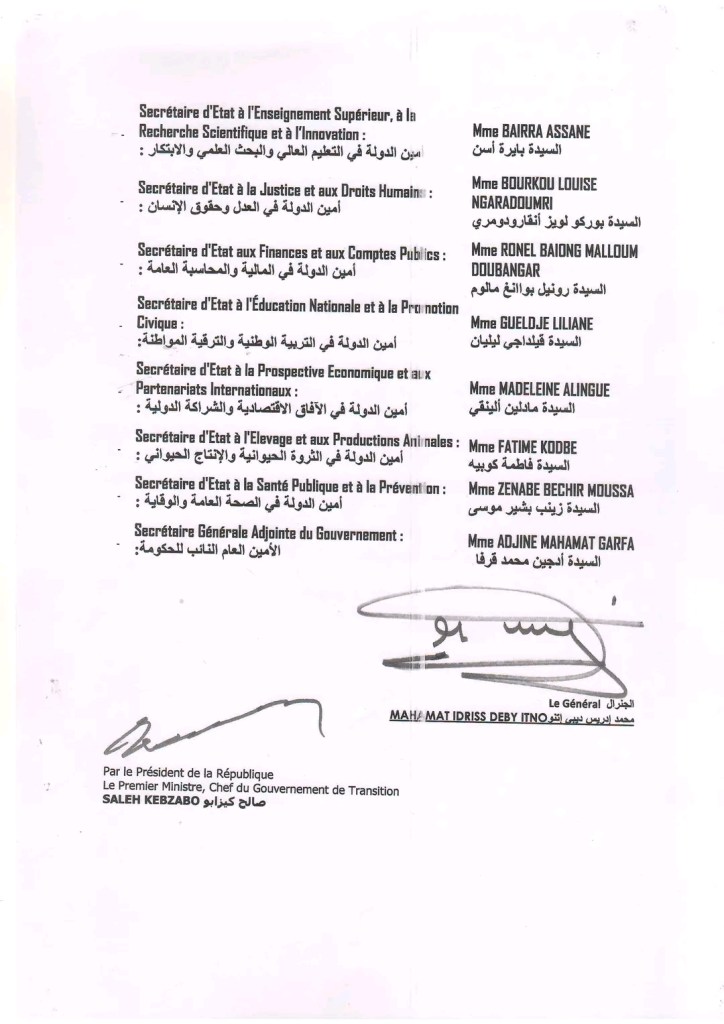 Secrétaire d'Etat à l'Enseignement Supérieur, à la
Recherche Scientifique et à l'Innovation :
أمين الدولة في التعليم العالي والبحث العلمي والابتكار :
Mme BAIRRA ASSANE
السيدة بايرة أسن
Secrétaire d'Etat à la Justice et aux Droits Humains :
أمين الدولة في العدل وحقوق الإنسان :
Mme BOURKOU LOUISE
NGARADOUMRI
السيدة بوركو لويز أنقارودومري
Secrétaire d'Etat aux Finances et aux Comptes Publics :
أمين الدولة في المالية والمحاسبة العامة :
Mme RONEL BAIONG MALLOUM
DOUBANGAR
السيدة رونيل بواانغ مالوم
Secrétaire d'Etat à l'Éducation Nationale et à la Promotion
Civique :
أمين الدولة في التربية الوطنية والترقية المواطنة:
Mme GUELDJE LILIANE
السيدة قيلداجي ليليان
Secrétaire d'Etat à la Prospective Economique et aux
Partenariats Internationaux :
أمين الدولة في الآفاق الاقتصادية والشراكة الدولية :
Mme MADELEINE ALINGUE
السيدة مادلين ألينقي
Secrétaire d'Etat à l'Elevage et aux Productions Animales :
أمين الدولة في الثروة الحيوانية والإنتاج الحيواني :
Mme FATIME KODBE
السيدة فاطمة كوبيه
Secrétaire d'Etat à la Santé Publique et à la Prévention :
أمين الدولة في الصحة العامة والوقاية :
Mme ZENABE BECHIR MOUSSA
السيدة زينب بشير موسى
Secrétaire Générale Adjointe du Gouvernement :
الأمين العام النائب للحكومة:
Mme ADJINE MAHAMAT GARFA
السيدة أدجين محمد قرفا
Le Général الجنرال
MAHAMAT IDRISS DEBY ITNO محمد إدريس ديبي إتنو
Par le Président de la République
Le Premier Ministre, Chef du Gouvernement de Transition
SALEH KEBZABO صالح كبزابو